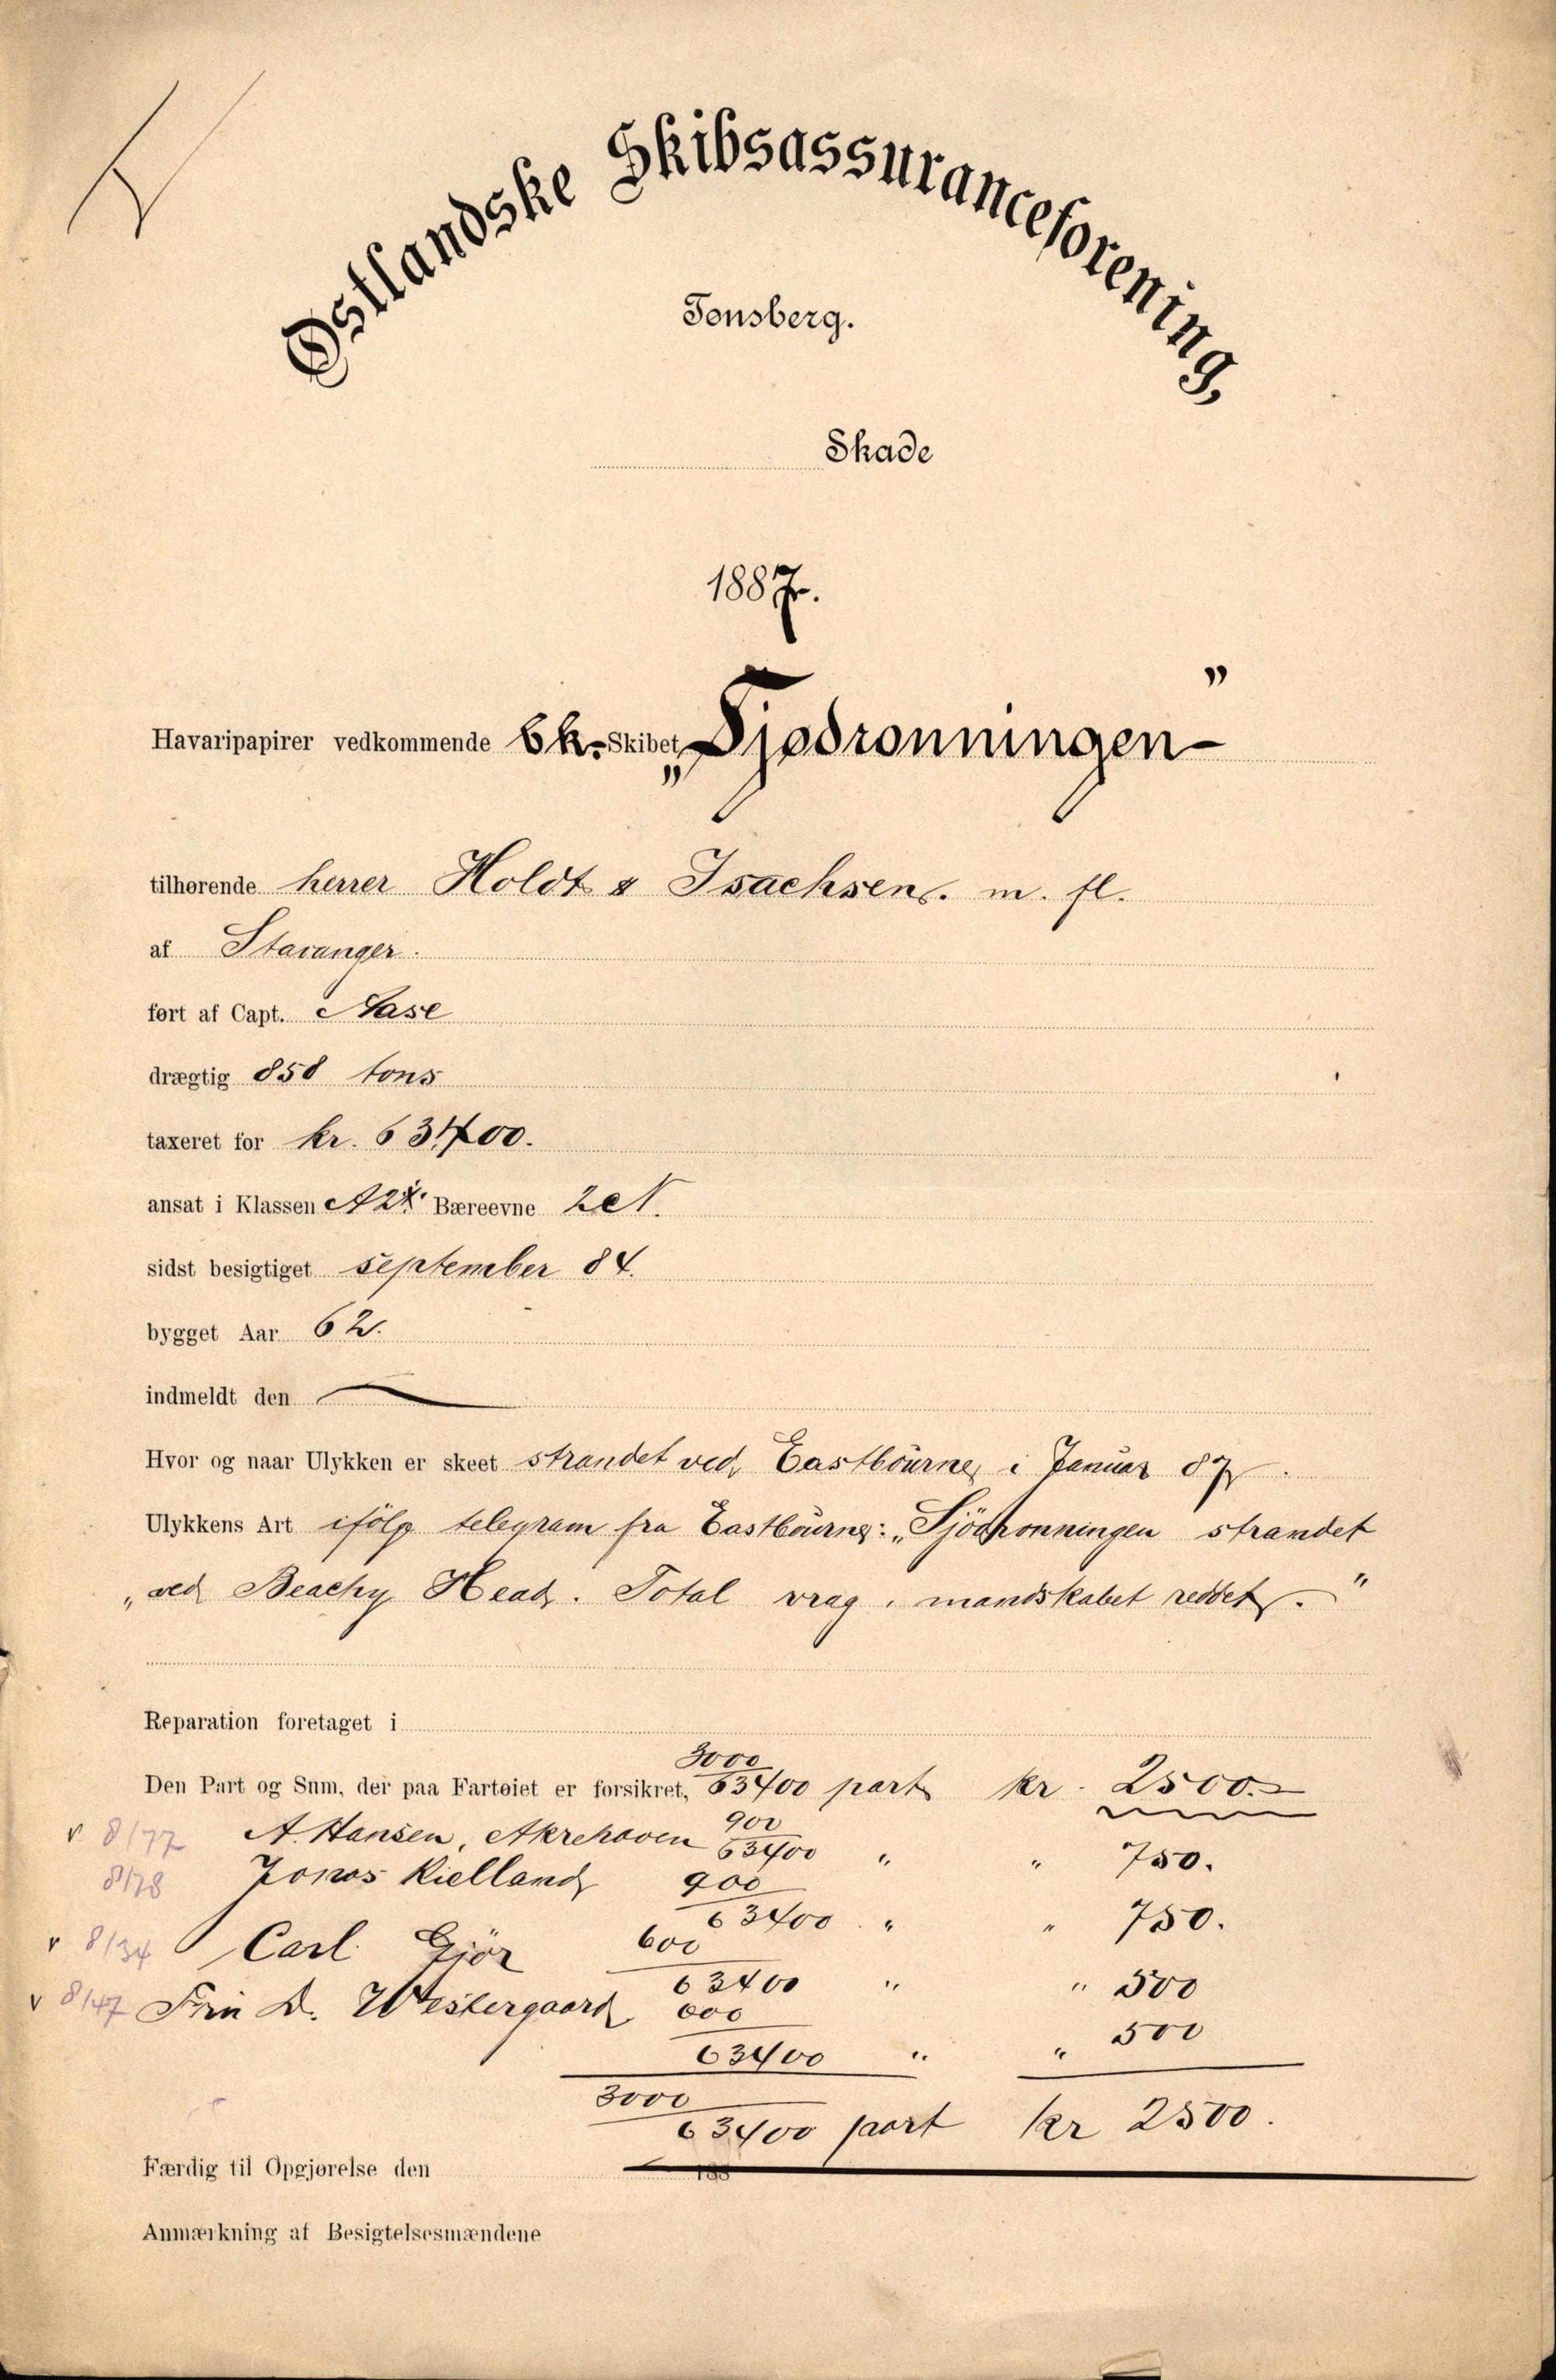 Østlandske Skibsassuranceforening,
Tønsberg.
Skade
1887.
Havaripapirer vedkommende Bk. Skibet „Sjødronningen"
tilhørende herrer Holdt & Isachsen. m. fl.
af Stavanger.
ført af Capt. Aase
drægtig 858 tons
taxeret for kr. 63400.
ansat i Klassen A2 Bæreevne
sidst besigtiget september 84.
bygget Aar 62.
indmeldt den
Hvor og naar Ulykken er skeet strandet ved Eastbourne, i Januar 87.
Ulykkens Art ifölge telegram fra Eastbourne: „Sjödronningen strandet
„ved Beachy Head. Total vrag, mandskabet reddet."
Reparation foretaget i
Den Part og Sum, der paa Fartøiet er forsikret, 3000/63400 part kr. 2500.-
v 8/77 A. Hansen, Akrehavn 900/63400 " " 750.
8/78 Jonas Kielland 900/63400 " " 750.
v 8/34 Carl Gjör 600/63400 " " 500
v 8/47 D. Westergaard 600/63400 " " 500
3000/63400 part kr 2500.
Færdig til Opgjørelse den 188
Anmærkning af Besigtelsesmændene